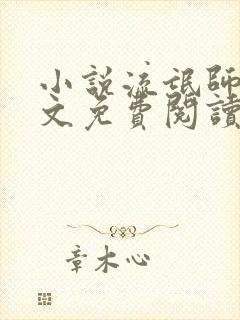 小說流氓師
文免費閱讀
章木心